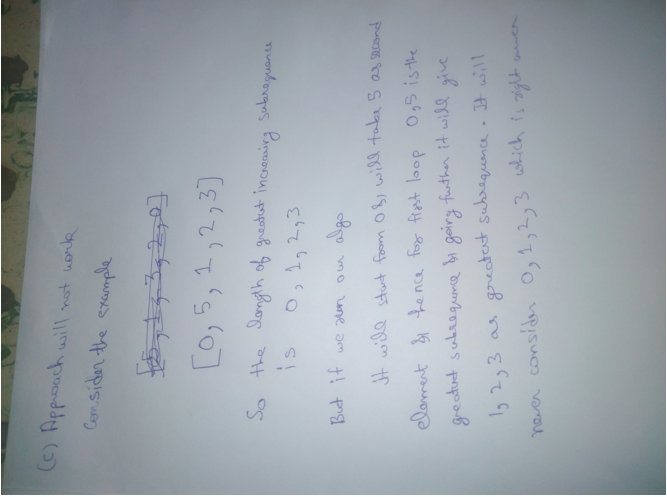 (c) Approach will not work
Consider the example
[5, 1, 3, 2, 0]
[0, 5, 1, 2, 3]
So the length of greatest increasing subsequence
is 0, 1, 2, 3
But if we run our algo
it will start from 0 & will take 5 as second
element & hence for first loop 0, 5 is the
greatest subsequence & going further it will give
1, 2, 3 as greatest subsequence. It will
never consider 0, 1, 2, 3 which is right answer